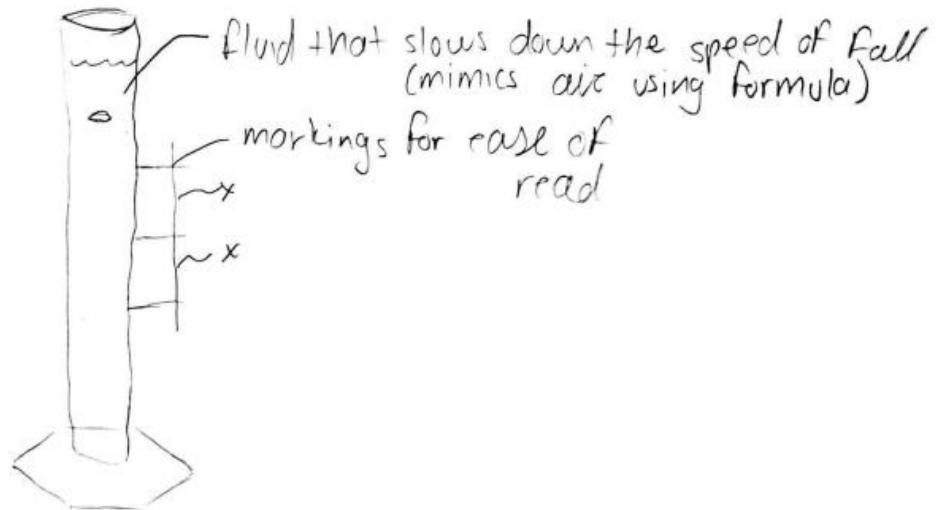 fluid that slows down the speed of fall
(mimics air using formula)
markings for ease of
read
x
x